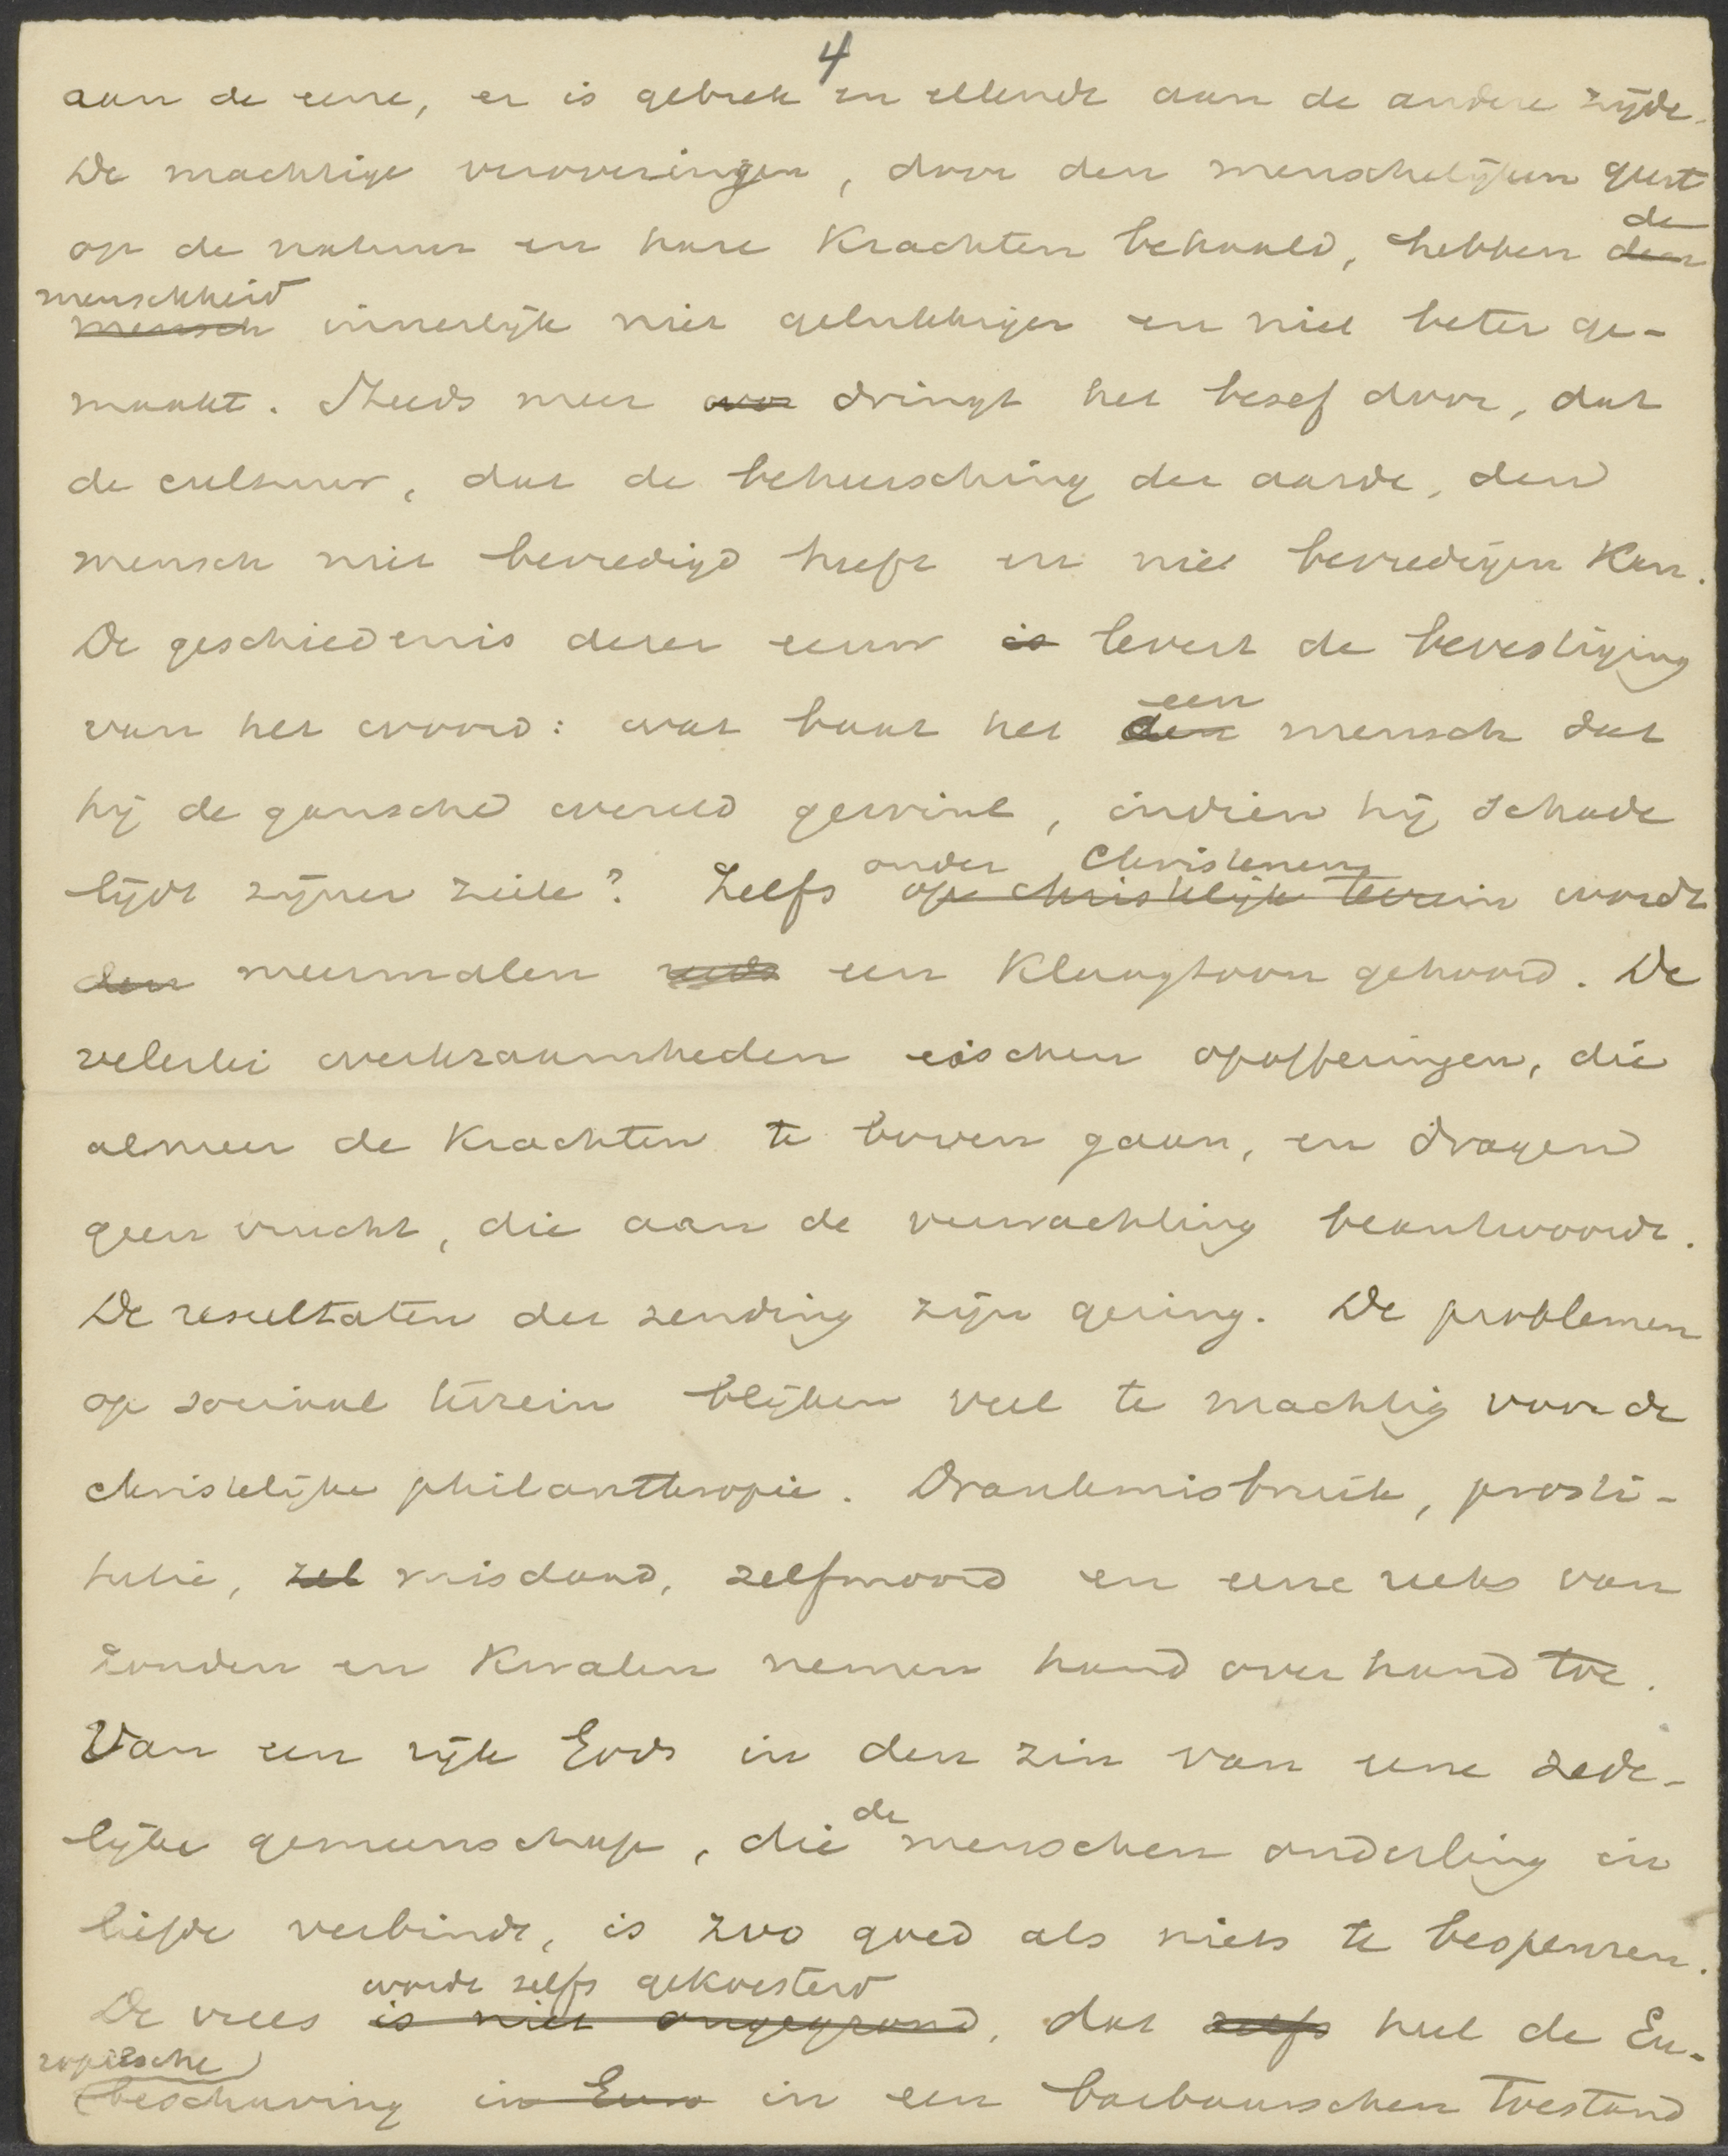 4
aan de eene, er is gebrek en ellende aan de andere zijde.
De machtige veroveringen, door den menschelijken geest
op de natuur en hare krachten behaald, hebben de den
menschheid
mensch innerlijk niet gelukkiger en niet beter ge-
maakt. Steeds meer dringt het besef door, dat
de cultuur, dat de beheersching der aarde, den
mensch niet bevredigd heeft en niet bevredigen kan.
De geschiedenis dezer eeuw is levert de bevestiging
van het woord: wat baat het een den mensch dat
hij de gansche wereld gewint, indien hij schade
lijdt zijner ziele? Zelfs onder Christenen op christelijk terrein wordt
den meermalen reeds een klaagtoon gehoord. De
velerlei werkzaamheden eischen opofferingen, die
almeer de krachten te boven gaan, en dragen
geen vrucht, die aan de verwachting beantwoordt.
De resultaten der zending zijn gering. De problemen
op sociaal terrein blijken veel te machtig voor de
christelijke philanthropie. Drankmisbruik, prosti-
tutie, zel misdaad, zelfmoord en eene reeks van
zonden en kwalen nemen hand over hand toe.
Van een rijk Gods in den zin van eene zede-
lijke gemeenschap, die de menschen onderling in
liefde verbindt, is zoo goed als niets te bespeuren.
wordt zelfs gekoesterd
De vrees is niet ongegrond, dat zelfs heel de Eu-
ropeesche
beschaving in Euro in een barbaarschen toestand